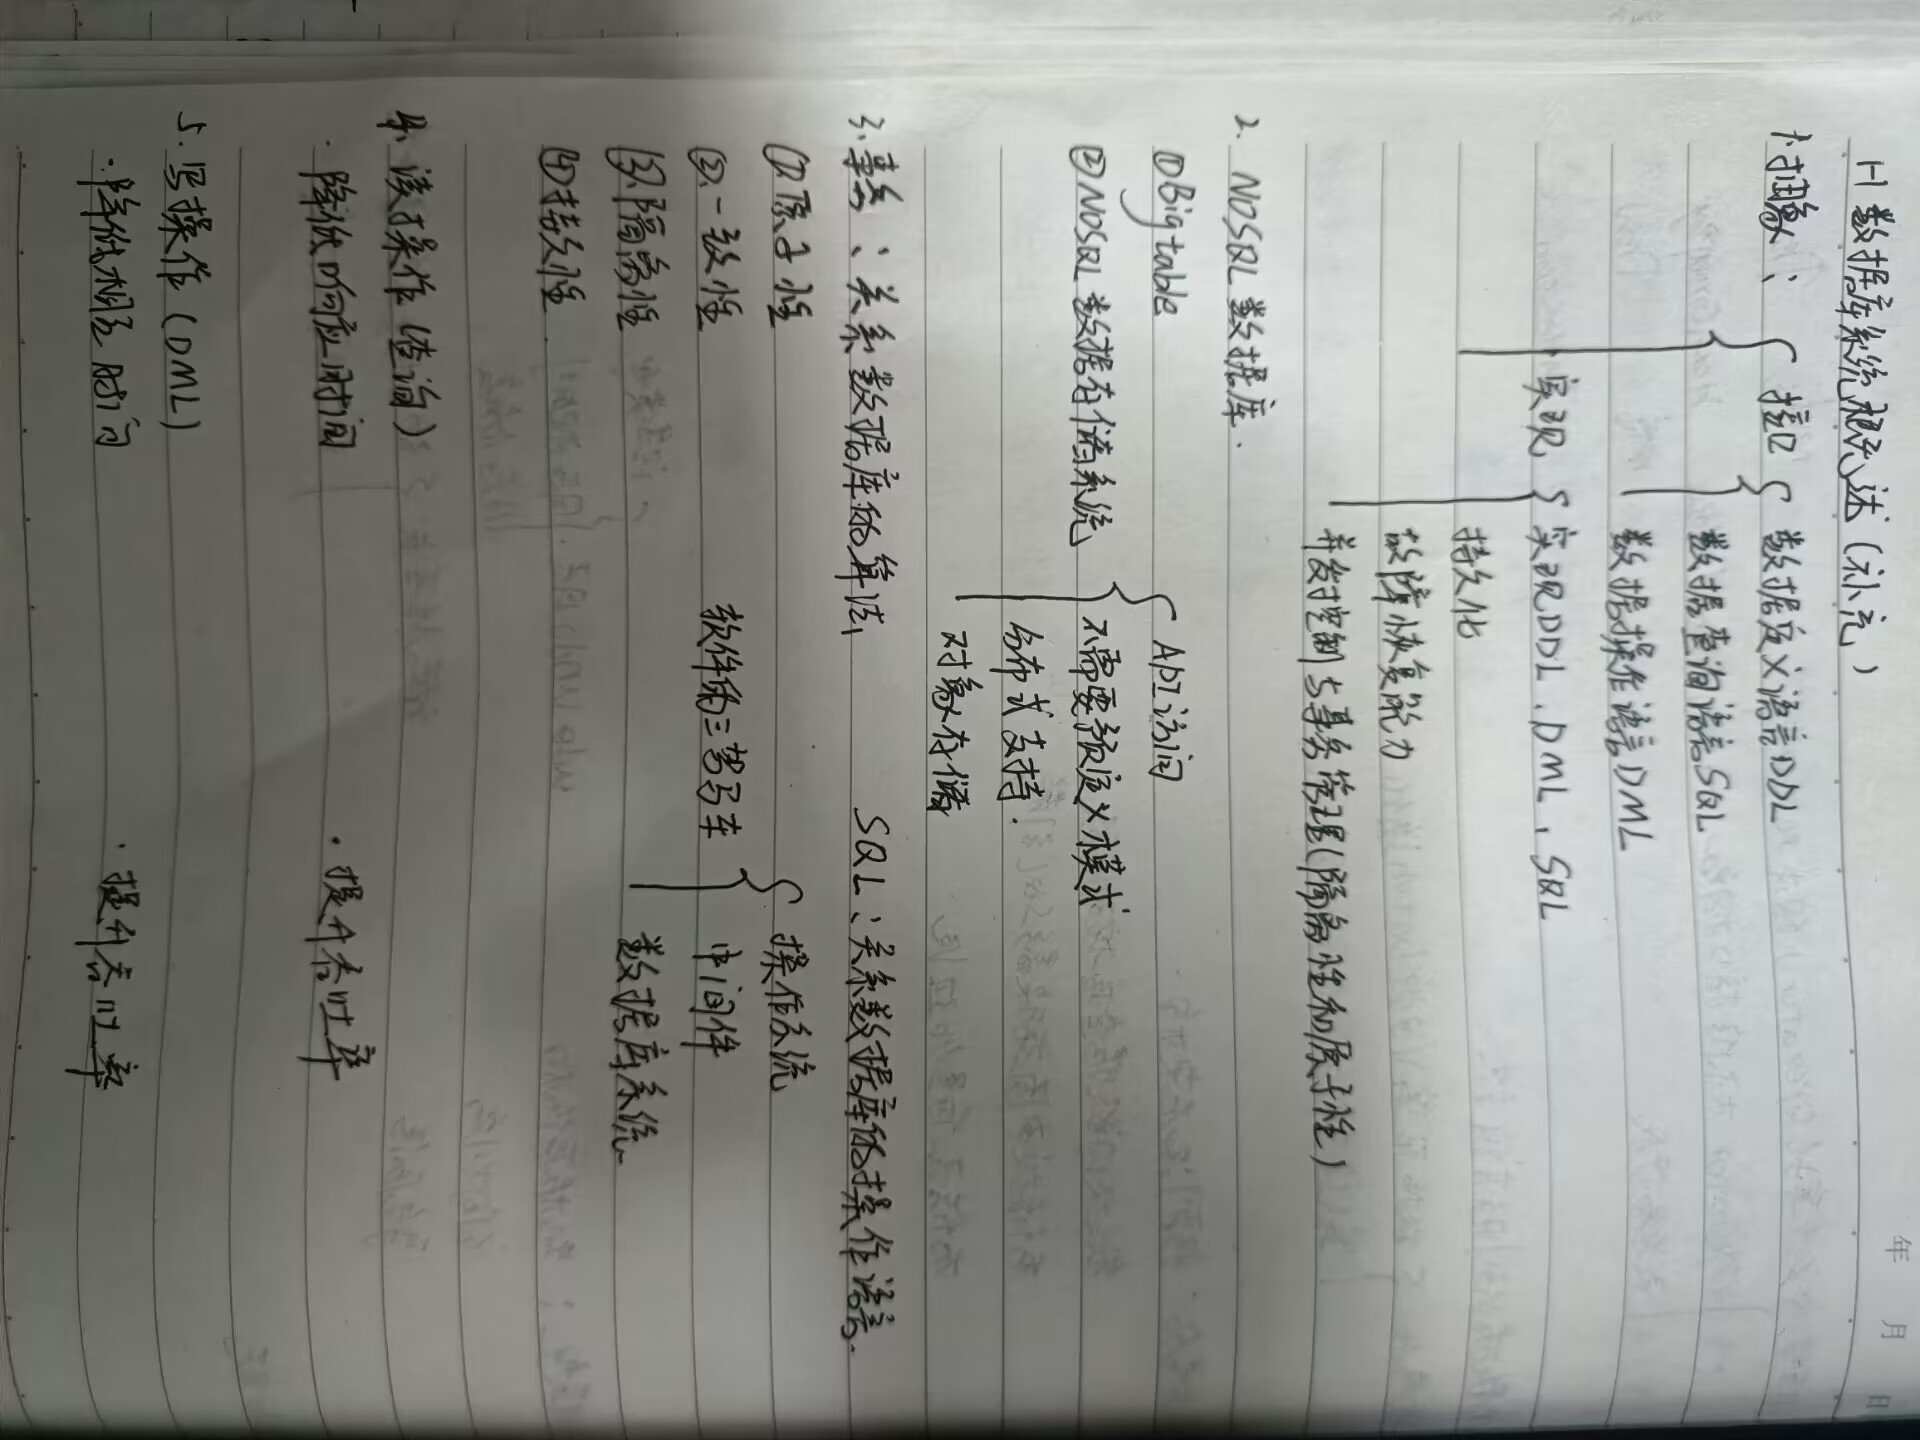 年 月 日
(一) 数据库系统概述 (补充)
1. 抽象、 接口 数据定义语言DDL
数据查询语言SQL
数据操作语言DML
实现 实现DDL、DML、SQL
持久化
故障恢复能力
并发控制与事务管理(隔离性和原子性)
2. NOSQL 数据库.
①Bigtable API访问
②NOSQL 数据存储系统 不需要预定义模式
分布式支持.
对象存储
3. 事务：关系数据库的算法 SQL：关系数据库的操作语言.
①原子性 操作系统
②一致性 软件的三驾马车 中间件
③隔离性 数据库系统
④持久性.
4. 读操作(查询)
·降低响应时间 ·提升吞吐率
5. 写操作(DML)
·降低响应时间 ·提升吞吐率